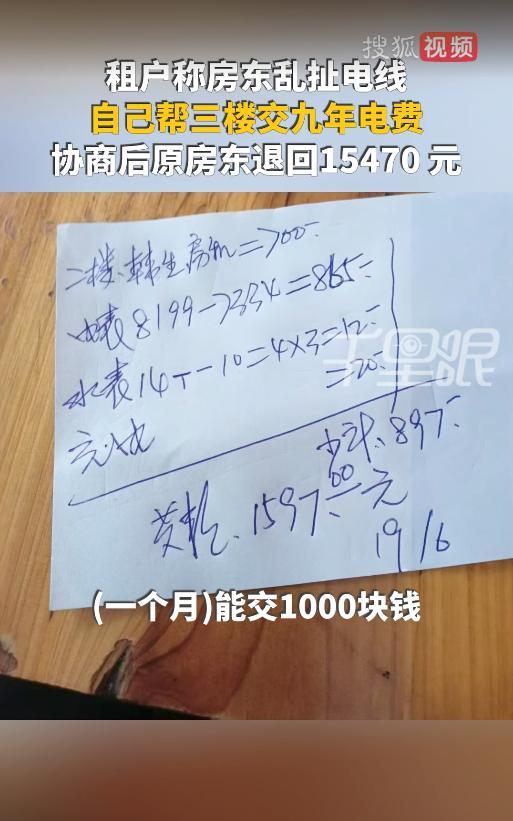 搜狐视频
租户称房东乱扯电线
自己帮三楼交九年电费
协商后原房东退回15470 元
二楼、韩生房租=700-
电表8199-7334=865-
水表14T-10=4×3=12-
=20-
小计、897-
1597.00元
19/6
千里眼
(一个月)能交1000块钱